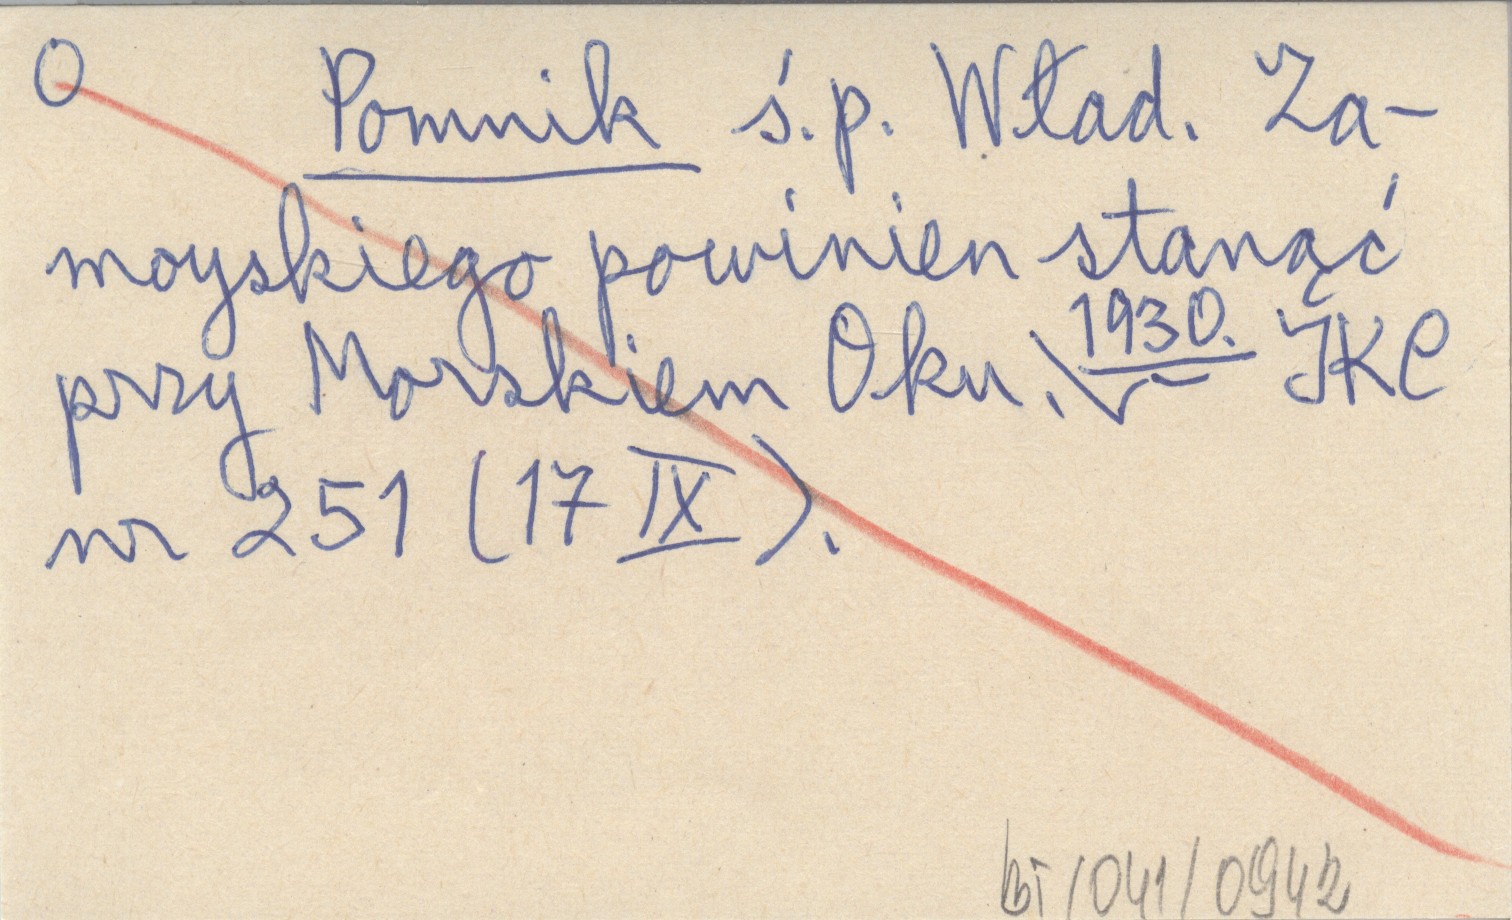 O Pomnik ś.p. Wład. Za-
moyskiego powinien stanąć
przy Morskiem Oku. 1930. IKC
nr 251 (17 IX).
bi/041/0942